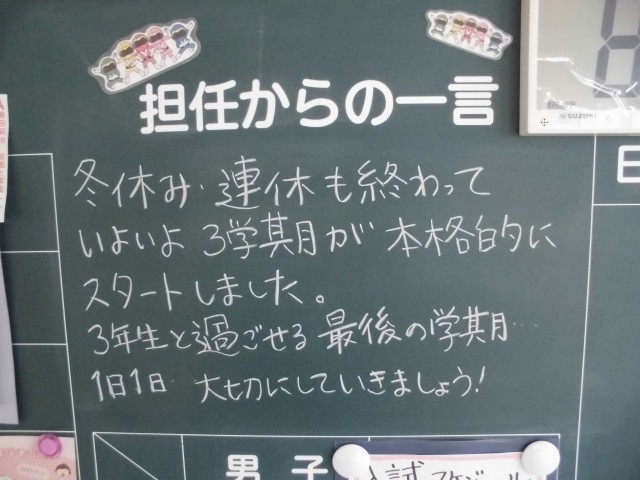 担任からの一言
冬休み・連休も終わって
いよいよ 3学期が 本格的に
スタートしました。
3年生と過ごせる 最後の学期…
1日1日 大切にしていきましょう!
日
男 子
入試スケジュール
SUZUKI